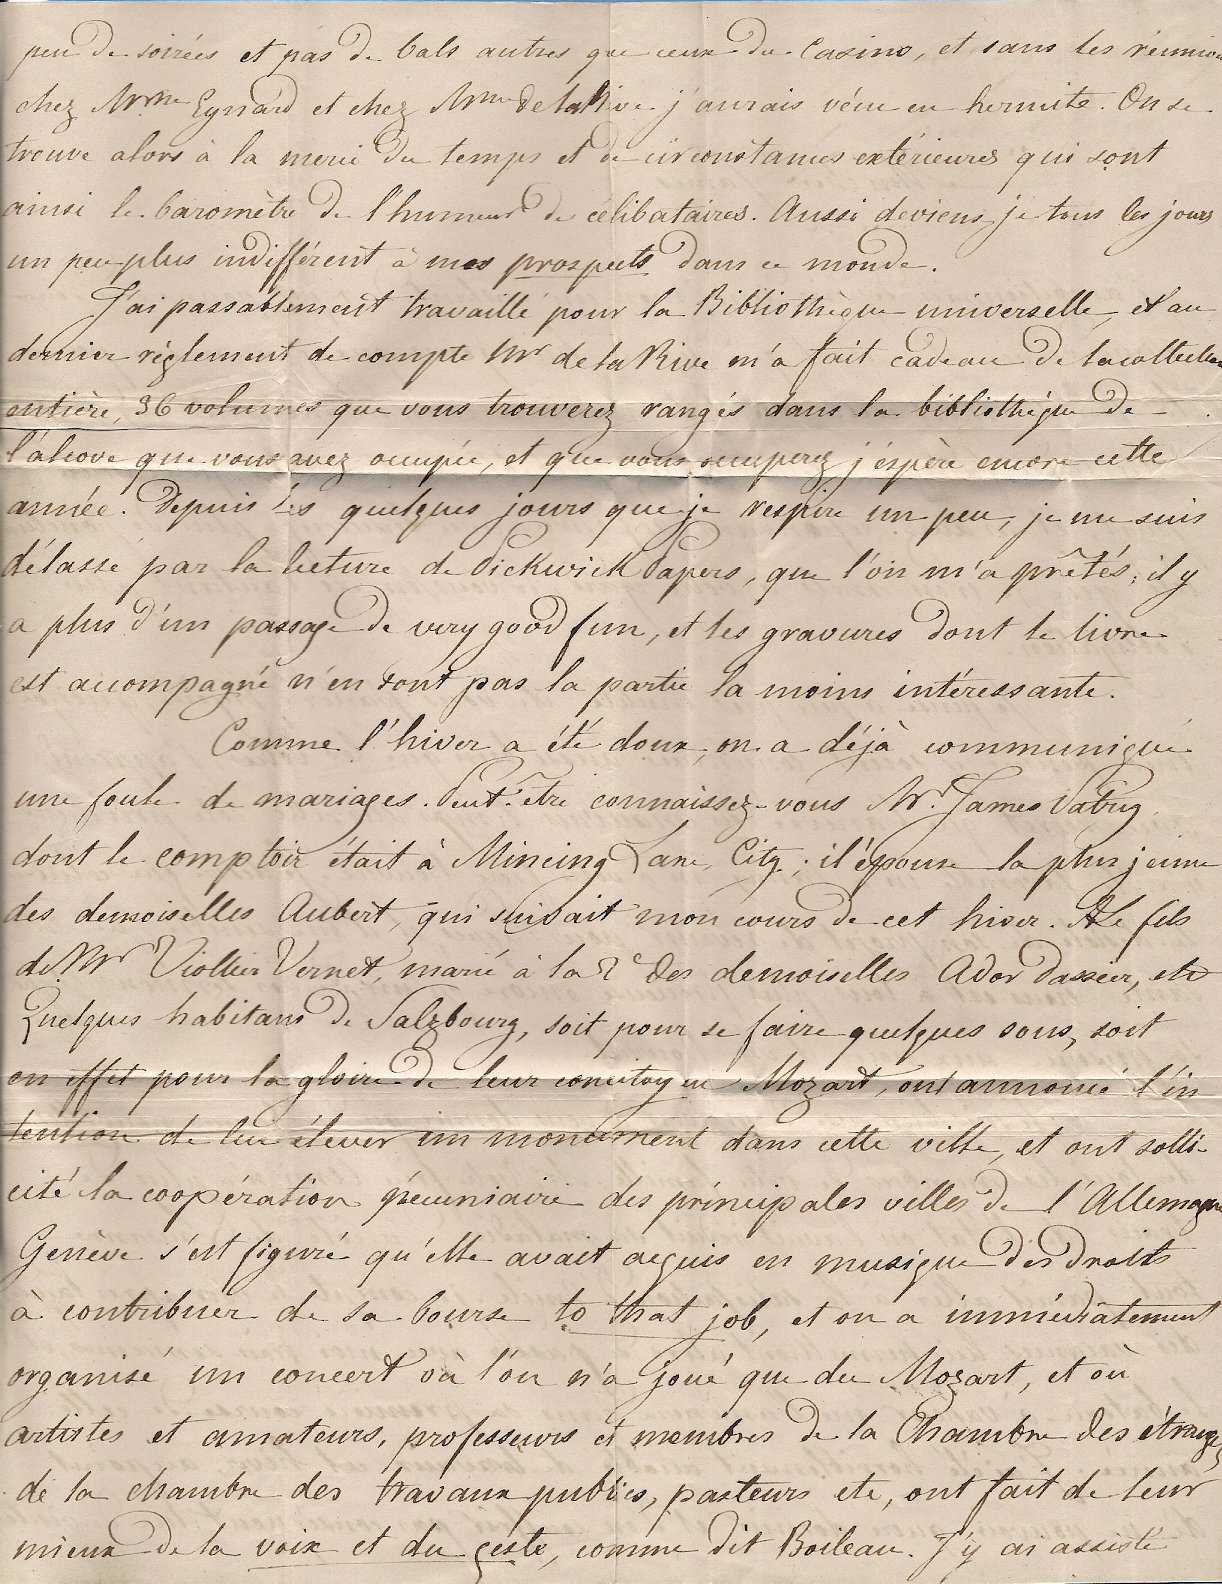 peu de soirées et pas de bals autres que ceux du Casino, et sans les réunion
chez Mme Eynard et chez Mme De la Rive j'aurais vécu en hermite. On se
trouve alors à la merci du temps et de circonstances extérieures qui sont
ainsi le baromètre de l'humeur de célibataires. Aussi deviens je tous les jours
un peu plus indifférent à mes prospects dans ce monde.
J'ai passablement travaillé pour la Bibliothèque universelle, et au
dernier règlement de compte Mr de la Rive m'a fait cadeau de la collection
entière, 36 volumes que vous trouverez rangés dans la bibliothèque de
l'alcove que vous avez occupée, et que vous occuperez j'espère encore cette
année. Depuis les quelques jours que je respire un peu, je me suis
délassé par la lecture de Pickwick Papers, que l'on m'a prêtés; il y
a plus d'un passage de very good fun, et les gravures dont le livre
est accompagné n'en sont pas la partie la moins intéressante.
Comme l'hiver a été doux, on a déjà communiqué
une foule de mariages. Peut-être connaissez-vous Mr. James
dont le comptoir était à Mincing Lane, City; il épouse la plus jeune
des demoiselles Aubert, qui suivait mon cours de cet hiver. Le fils
de Mr Viollier Vernet, marié à la 2e des demoiselles Ador Dassier, etc
Quelques habitans de Salzbourg, soit pour se faire quelques sous, soit
en effet pour la gloire de leur concitoyen Mozart, ont annoncé l'in
tention de lui élever un monument dans cette ville, et ont solli-
cité la coopération pécuniaire des principales villes de l'Allemagne
Genève s'est figuré qu'elle avait acquis en musique des droits
à contribuer de sa bourse to that job, et on a immédiatement
organisé un concert où l'on n'a joué que du Mozart, et où
artistes et amateurs, professeurs et membres de la Chambre des étrangers
de la chambre des travaux publics, pasteurs etc, ont fait de leur
mieux de la voix et du geste, comme dit Boileau. J'y ai assisté